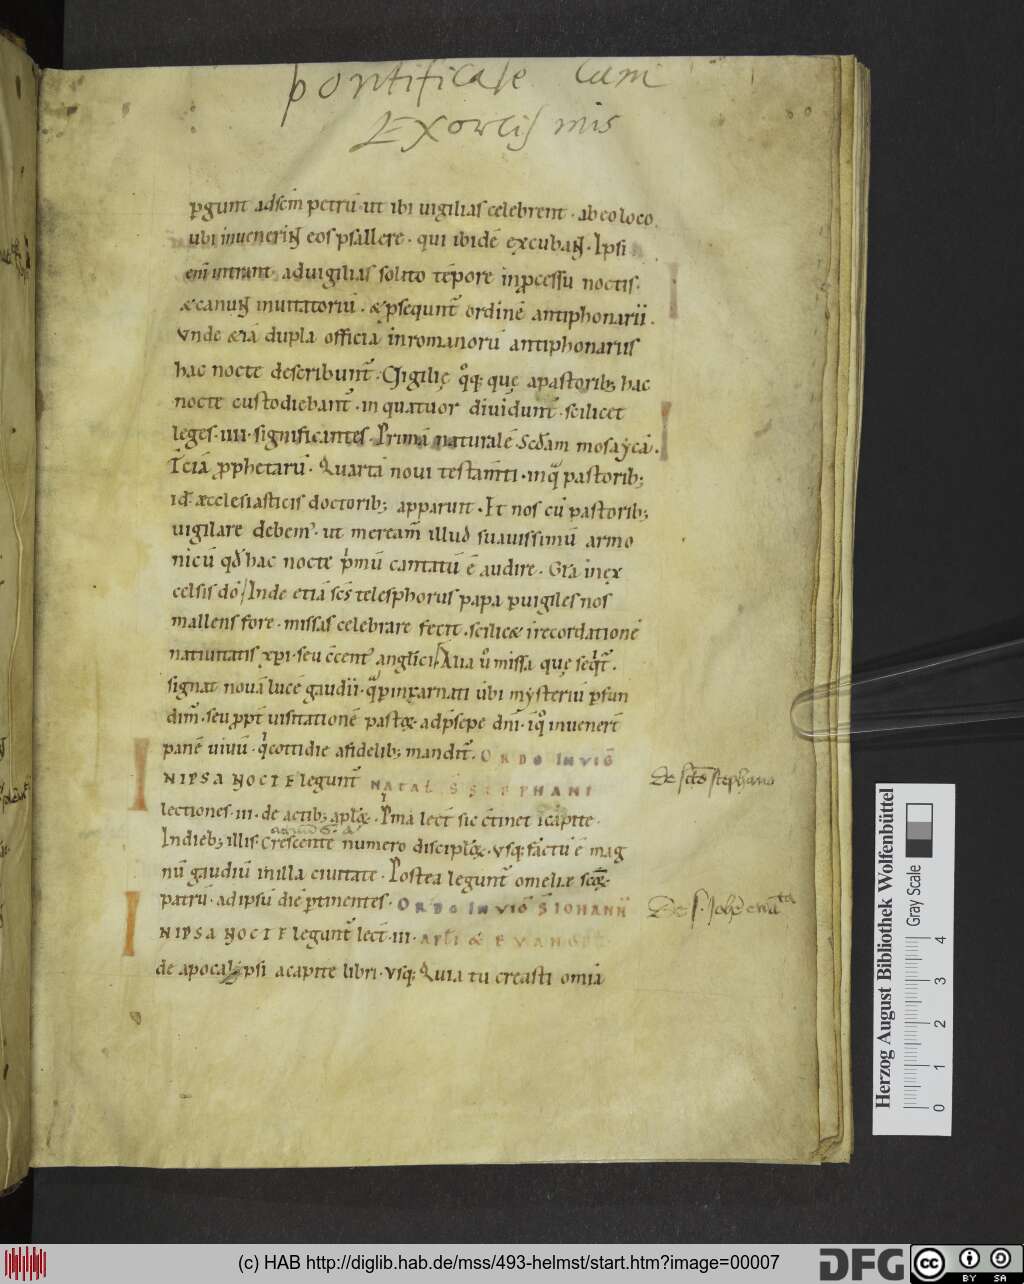 pontificale cum
Exorcismis
pgunt ad scm petrū ut ibi uigilias celebrent · ab eo loco
ubi inuenerint̄ eos psallere · qui ibidē excubant̄ · Ipsi
eni intrant ad uigilias solito tēpore in pcessu noctis ·
& canunt̄ inuitatoriū · & psequunt̄ ordinē antiphonarii ·
vnde &iā dupla officia in romanorū antiphonariis
hac nocte describunt̄ · Vigilię q̊q; quę a pastorib; hac
nocte custodiebant̄ · in quatuor diuidunt̄ · scilicet
leges · iiii · significantes · Primā naturalē Scd̄am mosaycā ·
T̄ciā pphetarū · Quartā noui testam̄ti · in q̄ pastorib;
id ē æcclesiasticis doctorib; apparuit · Et nos cū pastorib;
uigilare debem' · ut meream̄ illud suauissimū armo
nicū qd̄ hac nocte pmū cantatū ē audire · Gl̄a in ex
celsis dō / Inde etiā scs telesphorus papa puigiles nos
mallens fore · missas celebrare fecit · scilic& i recordationē
natiuitatis xp̄i · seu c̄cent' anglici / Alia ū missa que seq̄t̄ ·
signat nouā lucē gaudii · q̄ p incarnati ubi mysteriū psun
dim̄ · seu ppt̄ uisitationē pastoꝝ · ad psepe dn̄i · i q̊ inuenert̄
panē uiuū · q̄ cottidie a fidelib; mandit̄ · ORDO IN VIḠ
NIPSA NOCTE legunt̄ NATAL̄ S̄ STEPHANI
De scto stephano
lectiones · iii · de actib; aplōꝝ · Pma lect̄ sic c̄tinet i capite ·
In dieb; illis · Crescente numero discipl̄oꝝ · vsq; factū ē mag
nū gaudiū in illa ciuitate · Postea legunt̄ omelie scōꝝ
patrū · ad ipsū diē ptinentes · ORDO IN VIḠ S̄ IOHANN̄
NIPSA NOCTE legunt̄ lect̄ · iii · APL̄I &
de apocalypsi a capite libri · vsq; Quia tu creasti omīa
Herzog August Bibliothek Wolfenbüttel
Gray Scale
0 1 2 3 4
(c) HAB http://diglib.hab.de/mss/493-helmst/start.htm?image=00007
DFG
cc
BY SA